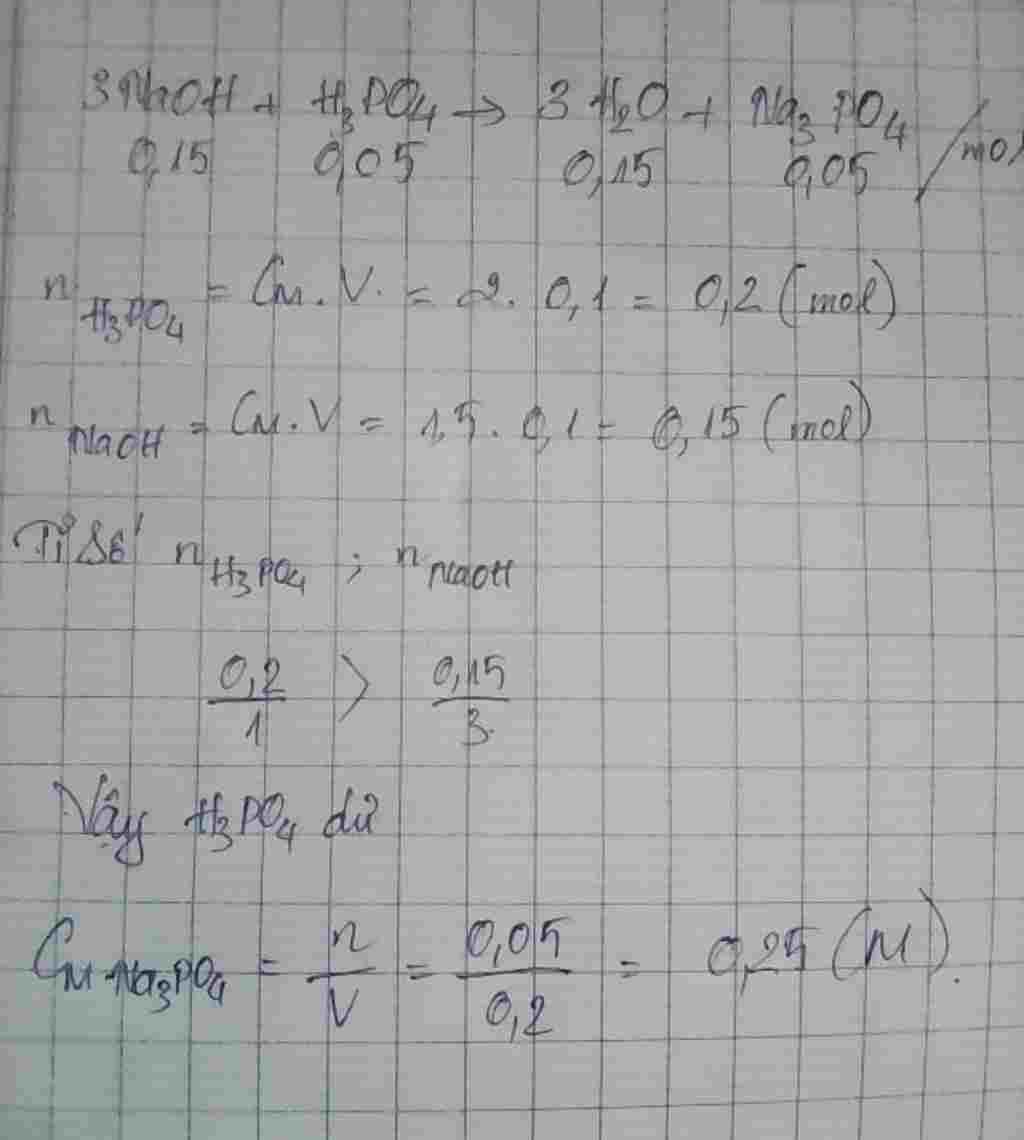 3NaOH + H₃PO₄ → 3 H₂O + Na₃PO₄ /mol
0,15 0,05 0,15 0,05
n H₃PO₄ = CM.V. = 2. 0,1 = 0,2 (mol)
n NaOH = CM.V = 1,5. 0,1 = 0,15 (mol)
Tỉ số n H₃PO₄ ; n NaOH
0,2/1 > 0,15/3
Vậy H₃PO₄ dư
CM Na₃PO₄ = n/V = 0,05/0,2 = 0,25 (M).